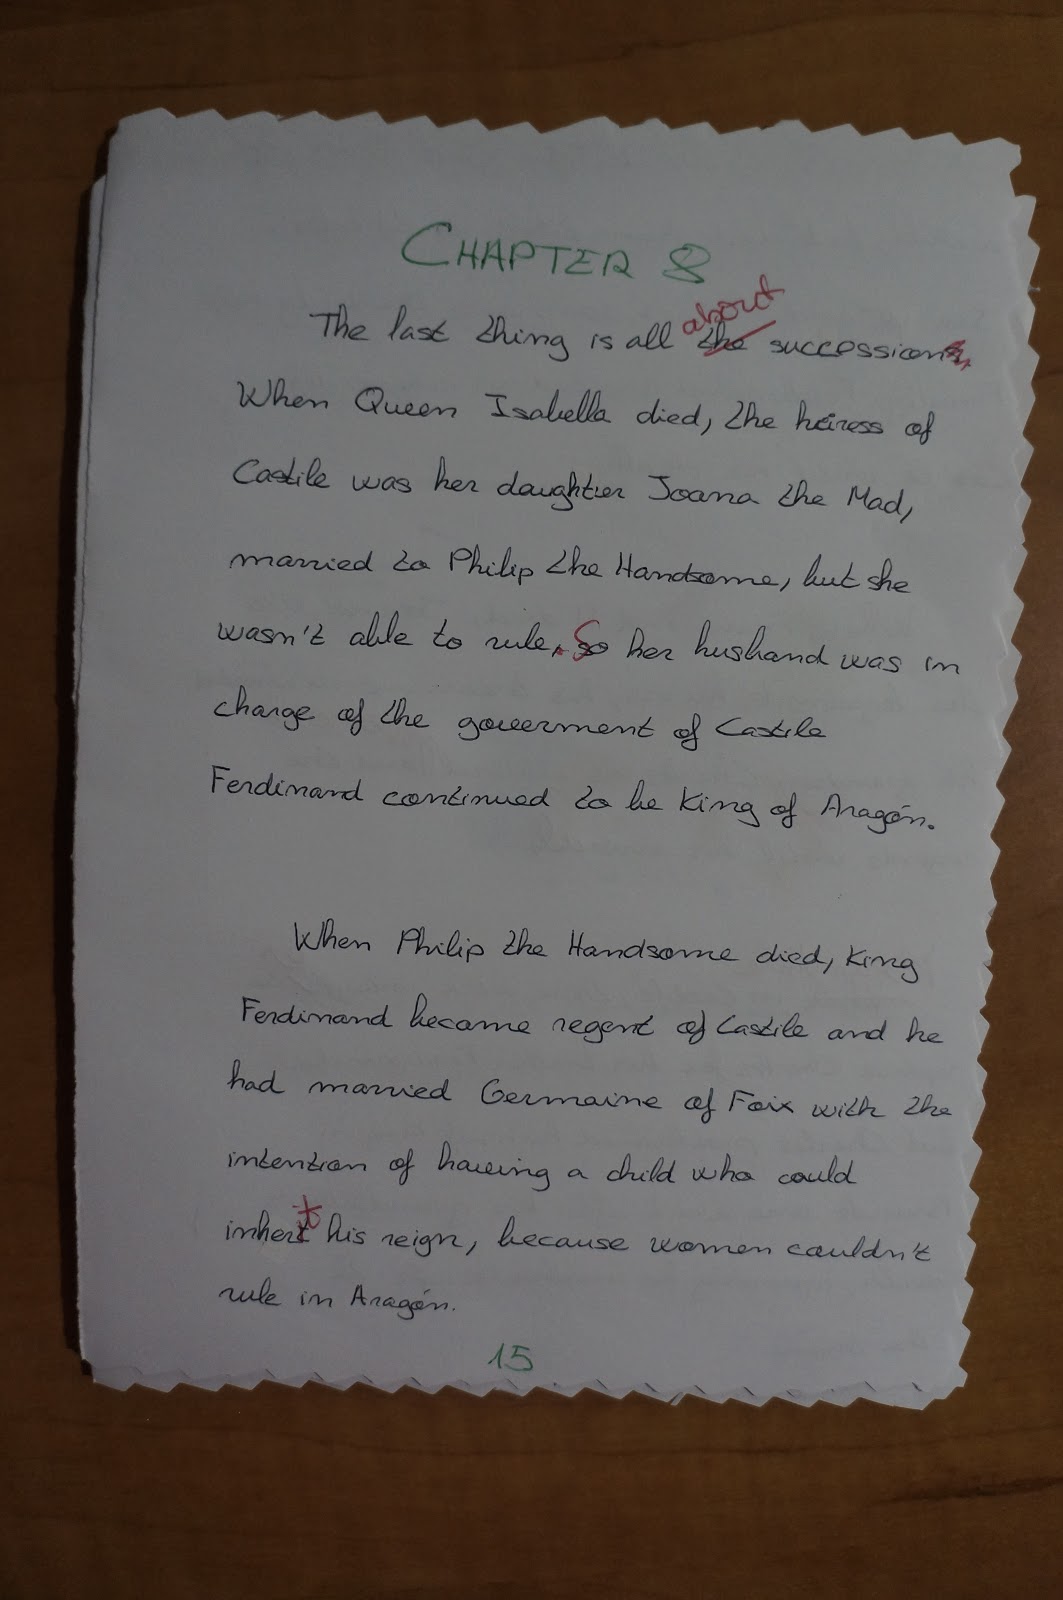 CHAPTER 8
about
The last thing is all the succession.
When Queen Isabella died, the heiress of
Castile was her daughter Joana the Mad,
married to Philip the Handsome, but she
wasn't able to rule. So her husband was in
charge of the goverment of Castile
Ferdinand continued to be King of Aragón.
When Philip the Handsome died, King
Ferdinand became regent of Castile and he
had married Germaine of Foix with the
intention of having a child who could
inherit his reign, because women couldn't
rule in Aragón.
15